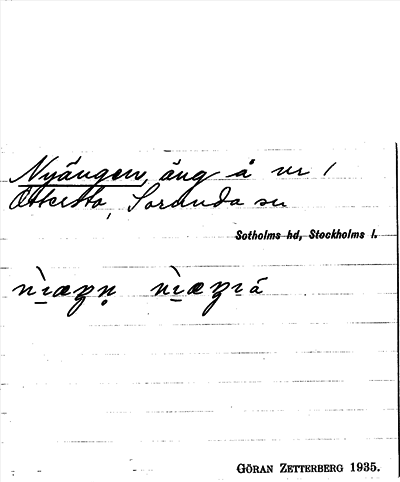 Nyängen, äng å nr 1
Ottersta, Sorunda sn
Sotholms hd, Stockholms l.
GÖRAN ZETTERBERG 1935.